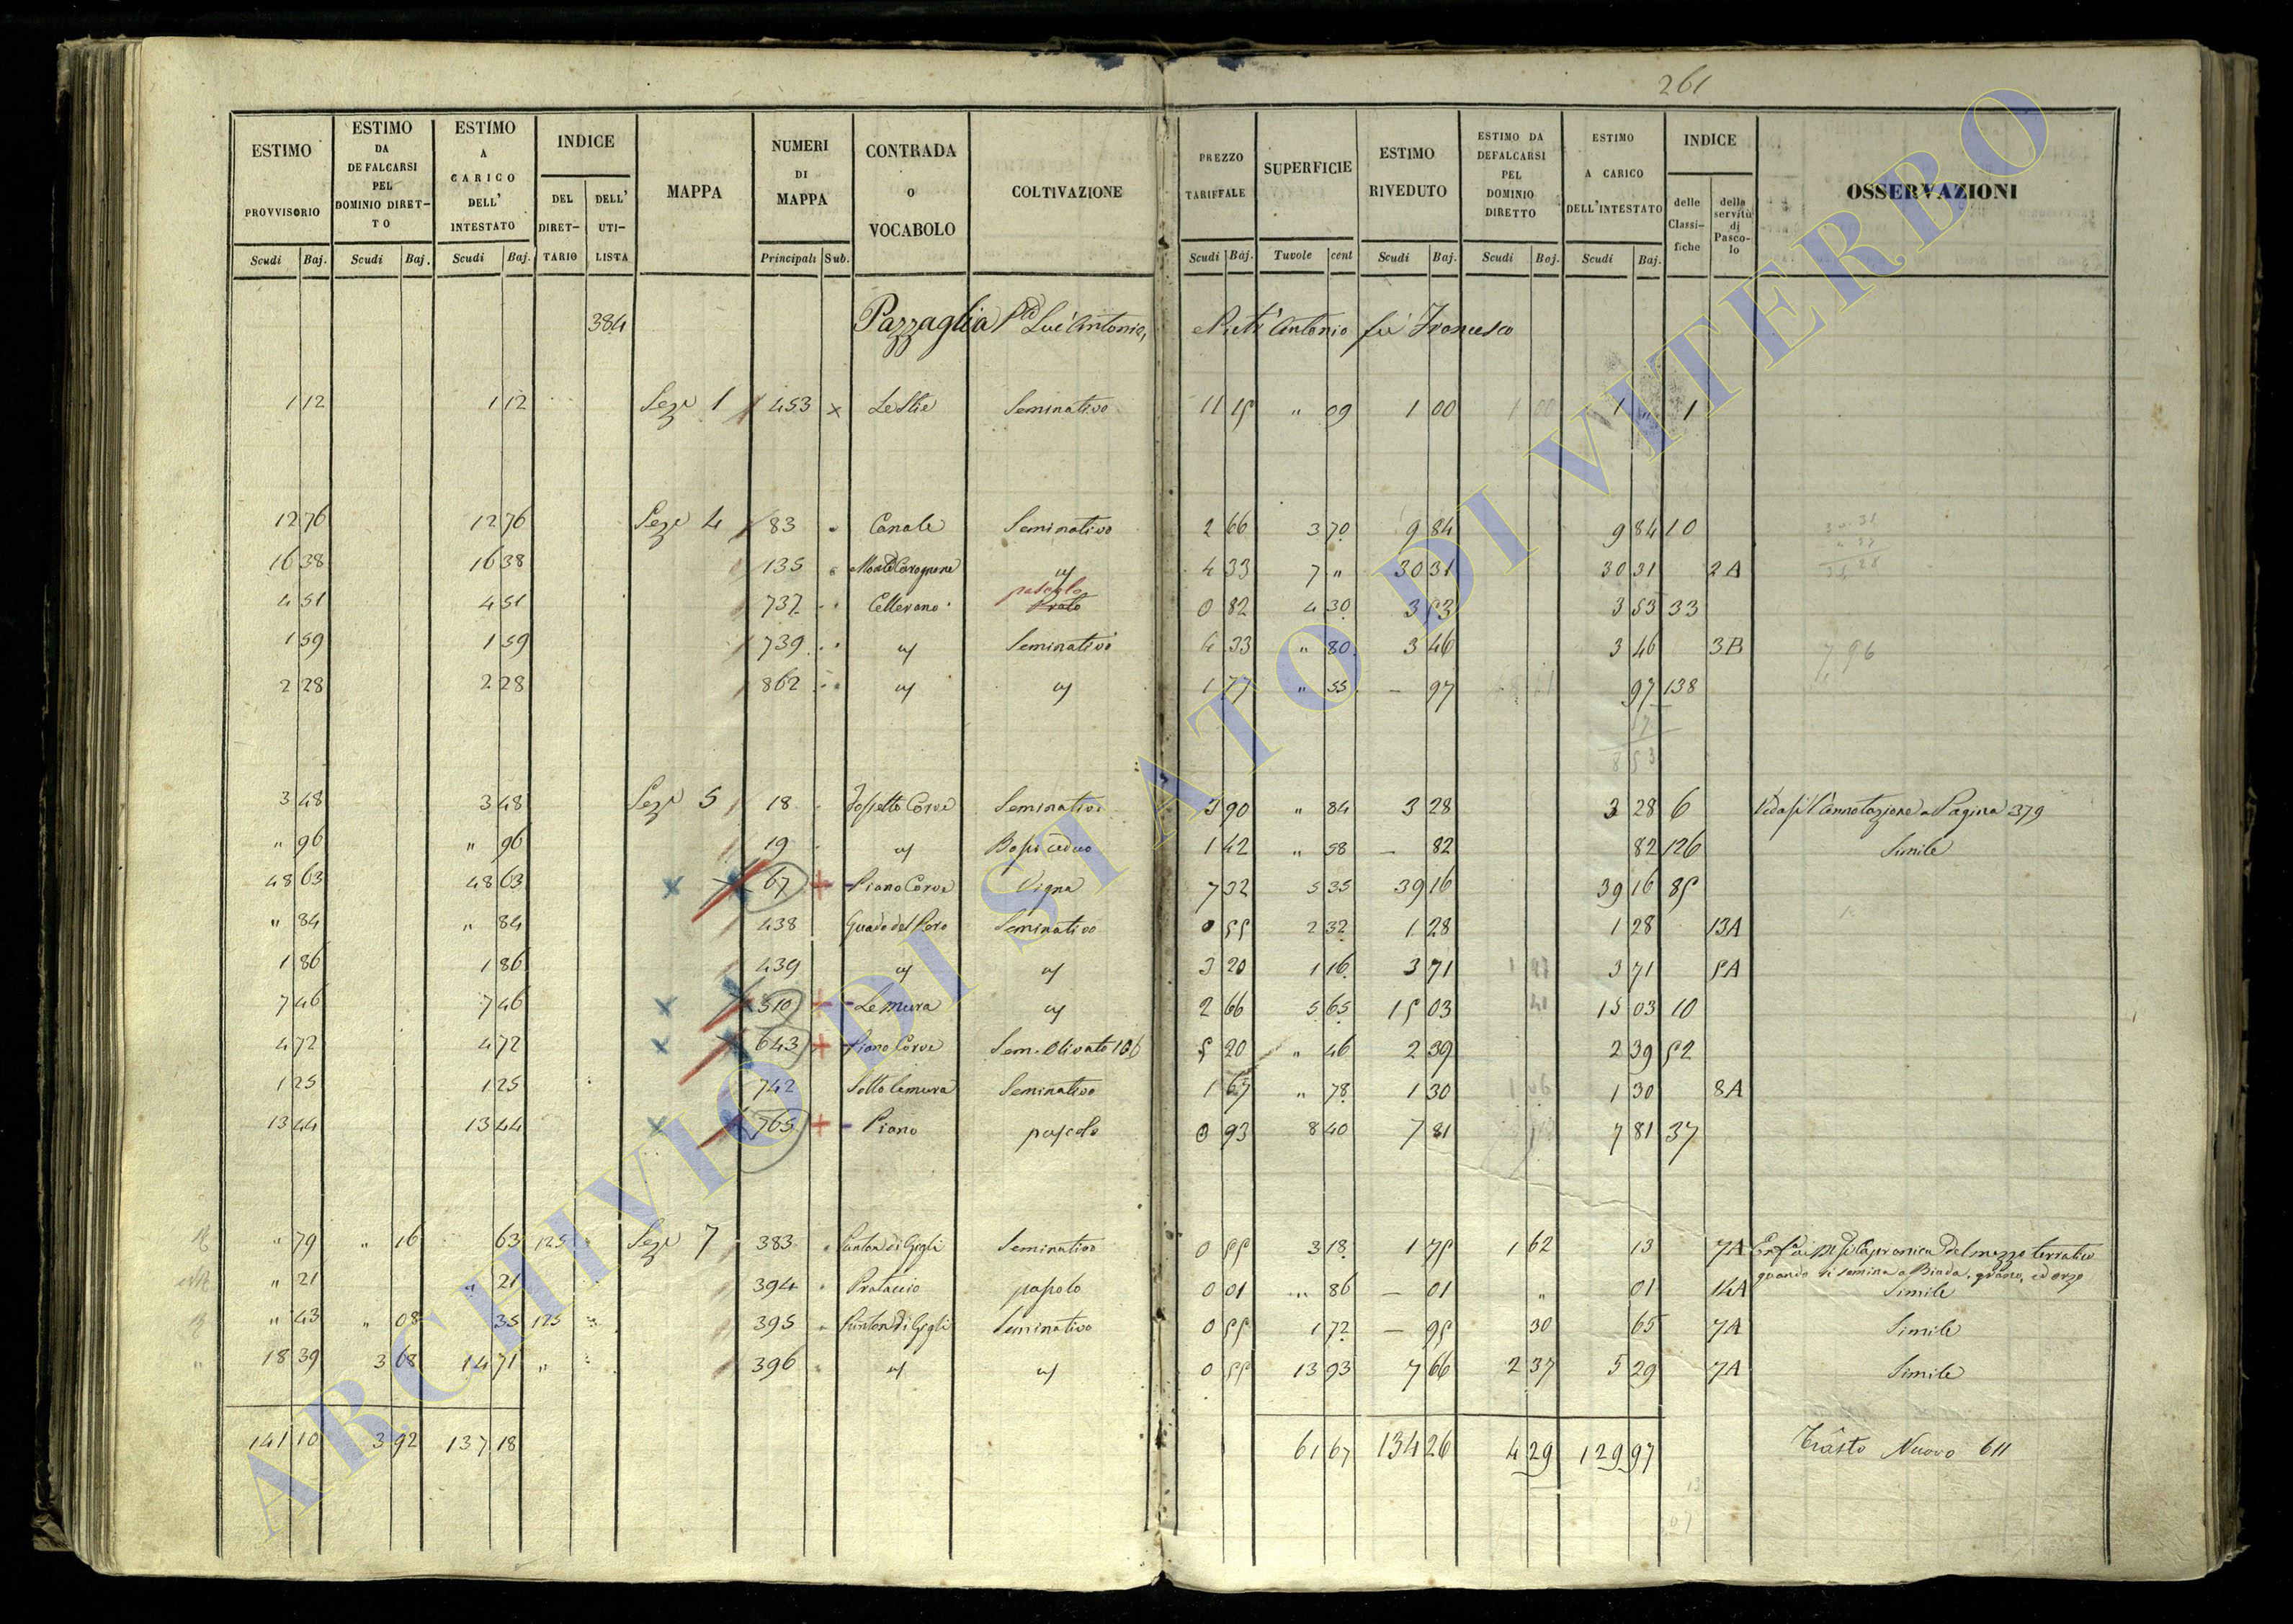 261
ESTIMO PROVVISORIO Scudi Baj.
ESTIMO DA DEFALCARSI PEL DOMINIO DIRETTO Scudi Baj.
ESTIMO A CARICO DELL' INTESTATO Scudi Baj.
INDICE DEL DIRETTARIO DELL' UTILISTA
MAPPA
NUMERI DI MAPPA Principali Sub.
CONTRADA o VOCABOLO
COLTIVAZIONE
PREZZO TARIFFALE Scudi Baj.
SUPERFICIE Tavole cent
ESTIMO RIVEDUTO Scudi Baj.
ESTIMO DA DEFALCARSI PEL DOMINIO DIRETTO Scudi Baj.
ESTIMO A CARICO DELL'INTESTATO Scudi Baj.
INDICE delle Classifiche delle servitù di Pascolo
OSSERVAZIONI
384 Pazzaglia Luc'Antonio, Antonio fu Francesco
1 12 1 12 Seze 1 453 x Le Stie Seminativo 11 15 " 09 1 00 1 00 1 " 1
12 76 12 76 Seze 4 83 Canale Seminativo 2 66 3 70 9 84 9 84 10
16 38 16 38 135 4 33 7 " 30 31 30 31 2A
4 51 4 51 737 Cellerano pascolo Prato 0 82 4 30 3 53 3 53 33
1 59 1 59 739 Seminativo 4 33 " 80 3 46 3 46 3B
2 28 2 28 862 1 77 " 55 — 97 97 138
3 48 3 48 Seze 5 18 Fossetto Corve Seminativo 3 90 " 84 3 28 3 28 6 Vedasi l'Annotazione a Pagina 379
" 96 " 96 19 Bosco ceduo 1 42 " 58 — 82 82 126 Simile
48 63 48 63 67 Piano Corve Vigna 7 32 5 35 39 16 39 16 85
" 84 " 84 438 Guado del Poro Seminativo 0 55 2 32 1 28 1 28 13A
1 86 1 86 439 3 20 1 16 3 71 3 71 5A
7 46 7 46 510 Le Mura 2 66 5 65 15 03 15 03 10
4 72 4 72 643 Piano Corve Sem. Olivato 106 5 20 " 46 2 39 2 39 52
1 25 1 25 742 Sotto le mura Seminativo 1 67 " 78 1 30 1 30 8A
13 44 13 44 765 Piano pascolo 0 93 8 40 7 81 7 81 37
" 79 " 16 63 125 Seze 7 383 Punton di Gigli Seminativo 0 55 3 18 1 75 1 62 13 7A di Capranica del mezzo terratico
quando si semina a Biada, grano, ed orzo
" 21 " 21 394 Prataccio pascolo 0 01 86 — 01 " 01 14A Simile
" 43 " 08 35 125 395 Punton di Gigli Seminativo 0 55 1 72 — 95 30 65 7A Simile
18 39 3 68 14 71 " 396 0 55 13 93 7 66 2 37 5 29 7A Simile
141 10 3 92 137 18 61 67 134 26 4 29 129 97 Trasto Nuovo 611
ARCHIVIO DI STATO DI VITERBO